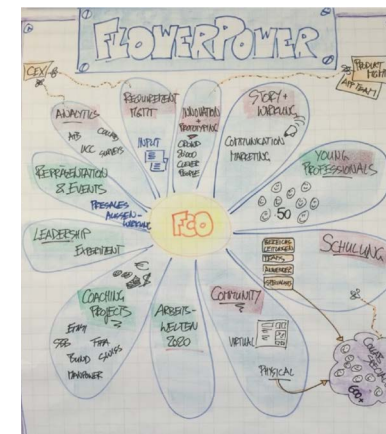 FLOWERPOWER
CEX
PRODUCT
MGMT
APP TEAM
ANALYTICS
A/B
SURVEYS
REQUIREMENT
MGMT
INPUT
INNOVATION
+
PROTOTYPING
CROWD
CLEVER
PEOPLE
STORY +
WIRKUNG
COMMUNICATION
MARKETING
YOUNG
PROFESSIONALS
50
REPRÄSENTATION
& EVENTS
PRESALES
AUSSEN-
WIRKUNG
FCO
LEADERSHIP
EXPERIMENT
SCHULUNG
TEAMS
COACHING
PROJECTS
SBB
MANPOWER
ARBEITS-
WELTEN
2020
COMMUNITY
VIRTUAL
PHYSICAL
600+